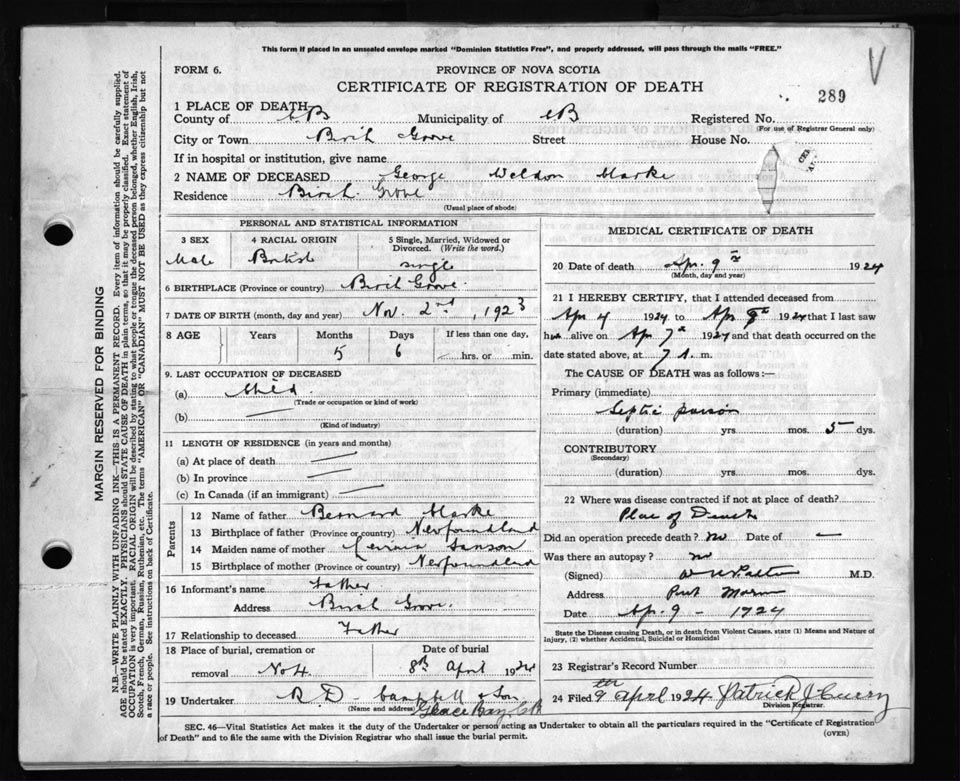 This form if placed in an unsealed envelope marked "Dominion Statistics Free", and properly addressed, will pass through the mails "FREE."
FORM 6.
PROVINCE OF NOVA SCOTIA
CERTIFICATE OF REGISTRATION OF DEATH
289
1 PLACE OF DEATH
County of CB Municipality of CB Registered No.
(For use of Registrar General only)
City or Town Birch Grove Street House No.
If in hospital or institution, give name
2 NAME OF DECEASED George Weldon Marke
Residence Birch Grove
(Usual place of abode)
PERSONAL AND STATISTICAL INFORMATION
3 SEX 4 RACIAL ORIGIN 5 Single, Married, Widowed or Divorced. (Write the word.)
Male British single
6 BIRTHPLACE (Province or country) Birch Grove.
7 DATE OF BIRTH (month, day and year) Nov. 2nd, 1923
8 AGE Years Months Days If less than one day,
5 6 hrs. or min.
9. LAST OCCUPATION OF DECEASED
(a) Child
(Trade or occupation or kind of work)
(b)
(Kind of industry)
11 LENGTH OF RESIDENCE (in years and months)
(a) At place of death
(b) In province
(c) In Canada (if an immigrant)
Parents
12 Name of father Bernard Marke
13 Birthplace of father (Province or country) Newfoundland
14 Maiden name of mother
15 Birthplace of mother (Province or country) Newfoundland
16 Informant's name Father
Address Birch Grove.
17 Relationship to deceased Father
18 Place of burial, cremation or Date of burial
removal No 4 8th April 1924
19 Undertaker R. D. Campbell & Son
(Name and address) Glace Bay, C B
MEDICAL CERTIFICATE OF DEATH
20 Date of death Apr. 9th 1924
(Month, day and year)
21 I HEREBY CERTIFY, that I attended deceased from
Apr 4 1924 to Apr 1924 that I last saw
him alive on Apr 7th 1924 and that death occurred on the
date stated above, at 7 A. m.
The CAUSE OF DEATH was as follows:—
Primary (immediate)
Septic poison
(duration) yrs. mos. 5 dys.
CONTRIBUTORY
(Secondary)
(duration) yrs. mos. dys.
22 Where was disease contracted if not at place of death?
Place of Death
Did an operation precede death? no Date of —
Was there an autopsy? no
(Signed) M.D.
Address Port Morien
Date Ap. 9 - 1924
State the Disease causing Death, or in death from Violent Causes, state (1) Means and Nature of
Injury, (2) whether Accidental, Suicidal or Homicidal
23 Registrar's Record Number
24 Filed 9th April 1924 Patrick J Curry
Division Registrar.
SEC. 46—Vital Statistics Act makes it the duty of the Undertaker or person acting as Undertaker to obtain all the particulars required in the "Certificate of Registration
of Death" and to file the same with the Division Registrar who shall issue the burial permit.
(OVER)
MARGIN RESERVED FOR BINDING
N.B.—WRITE PLAINLY WITH UNFADING INK—THIS IS A PERMANENT RECORD. Every item of information should be carefully supplied.
AGE should be stated EXACTLY. PHYSICIANS should STATE CAUSE OF DEATH in plain terms, so that it may be properly classified. Exact statement of
OCCUPATION is very important. RACIAL ORIGIN will be described by stating to what people or tongue the deceased person belonged, whether English, Irish,
Scotch, French, German, Russian, Ruthenian, etc. The terms "AMERICAN" OR "CANADIAN" MUST NOT BE USED as they express citizenship but not
a race or people. See instructions on back of Certificate.